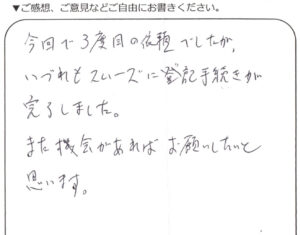 ▼ご感想、ご意見などご自由にお書きください。
今回で3度目の依頼でしたが、
いづれもスムーズに登記手続きが
完了しました。
また機会があればお願いしたいと
思います。